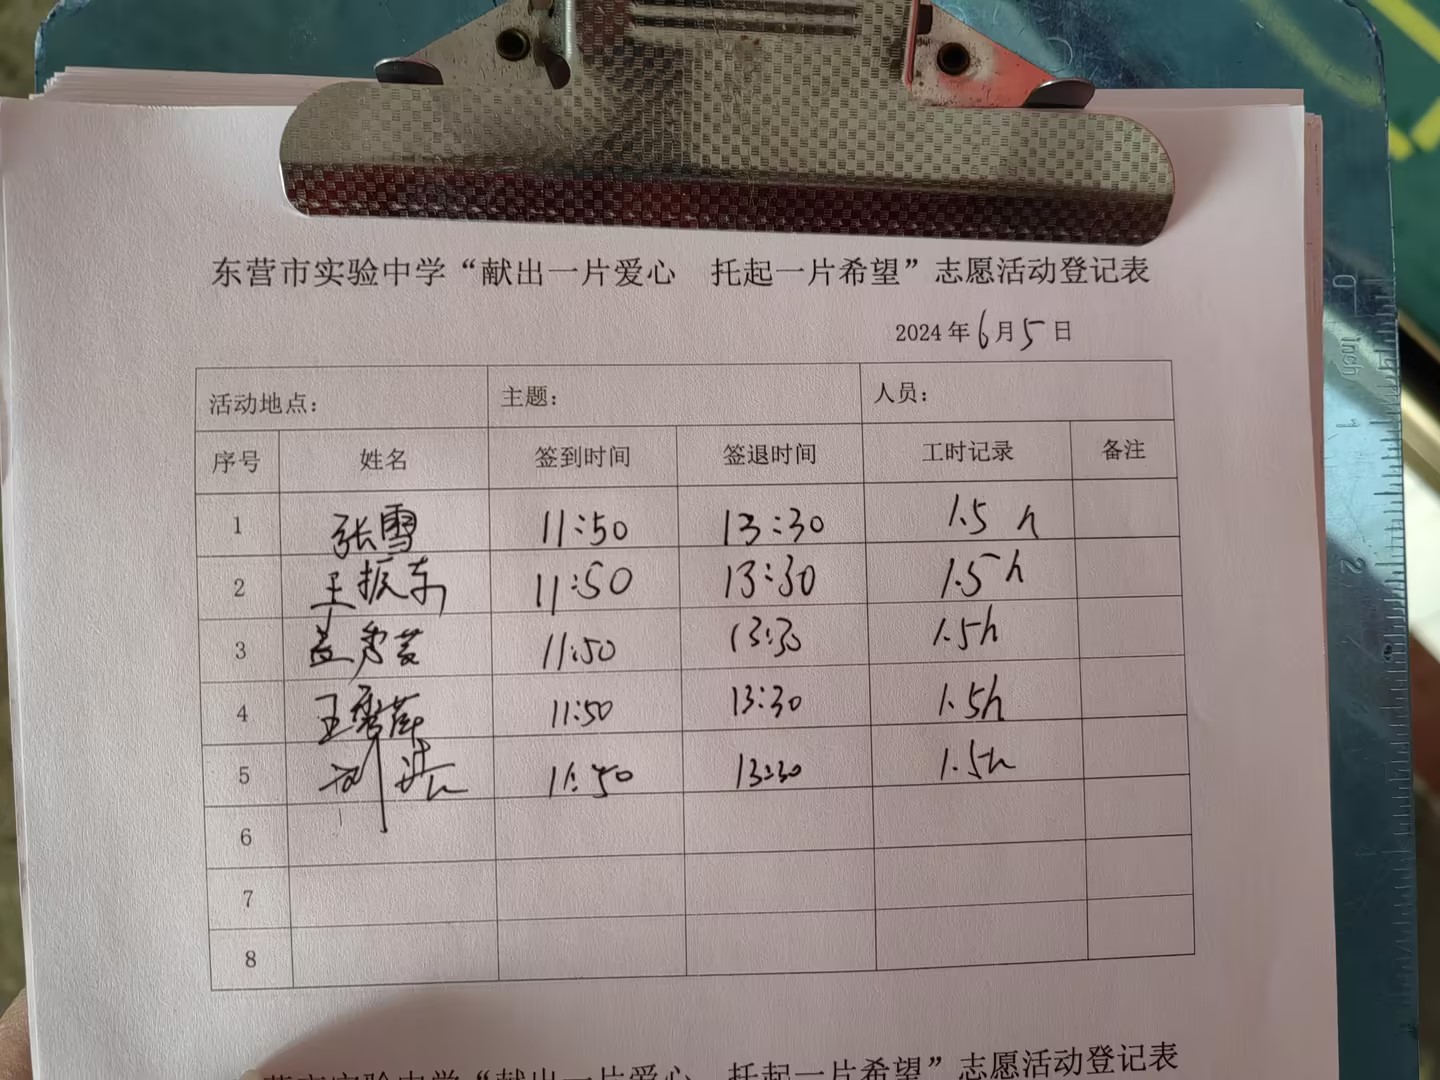 东营市实验中学“献出一片爱心 托起一片希望”志愿活动登记表
2024年6月5日
活动地点： 主题： 人员：
序号 姓名 签到时间 签退时间 工时记录 备注
1 张雪 11:50 13:30 1.5 h
2 王振东 11:50 13:30 1.5h
3 11:50 13:30 1.5h
4 王秀萍 11:50 13:30 1.5h
5 刘 11:50 13:30 1.5h
6
7
8
营市实验中学“献出一片爱心 托起一片希望”志愿活动登记表
inch
0
1
2